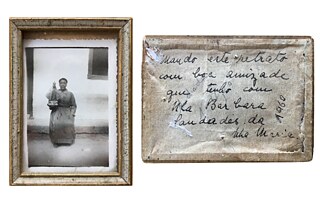 Mando este retrato
com boa amizade
que tenho com
Nha Barbara
Saudades da
Nha Maria
1960